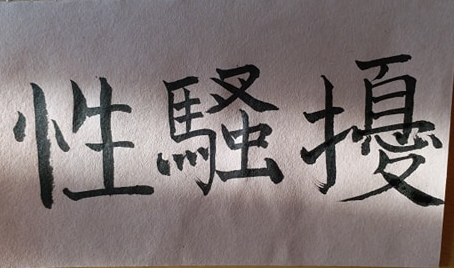 性騷擾